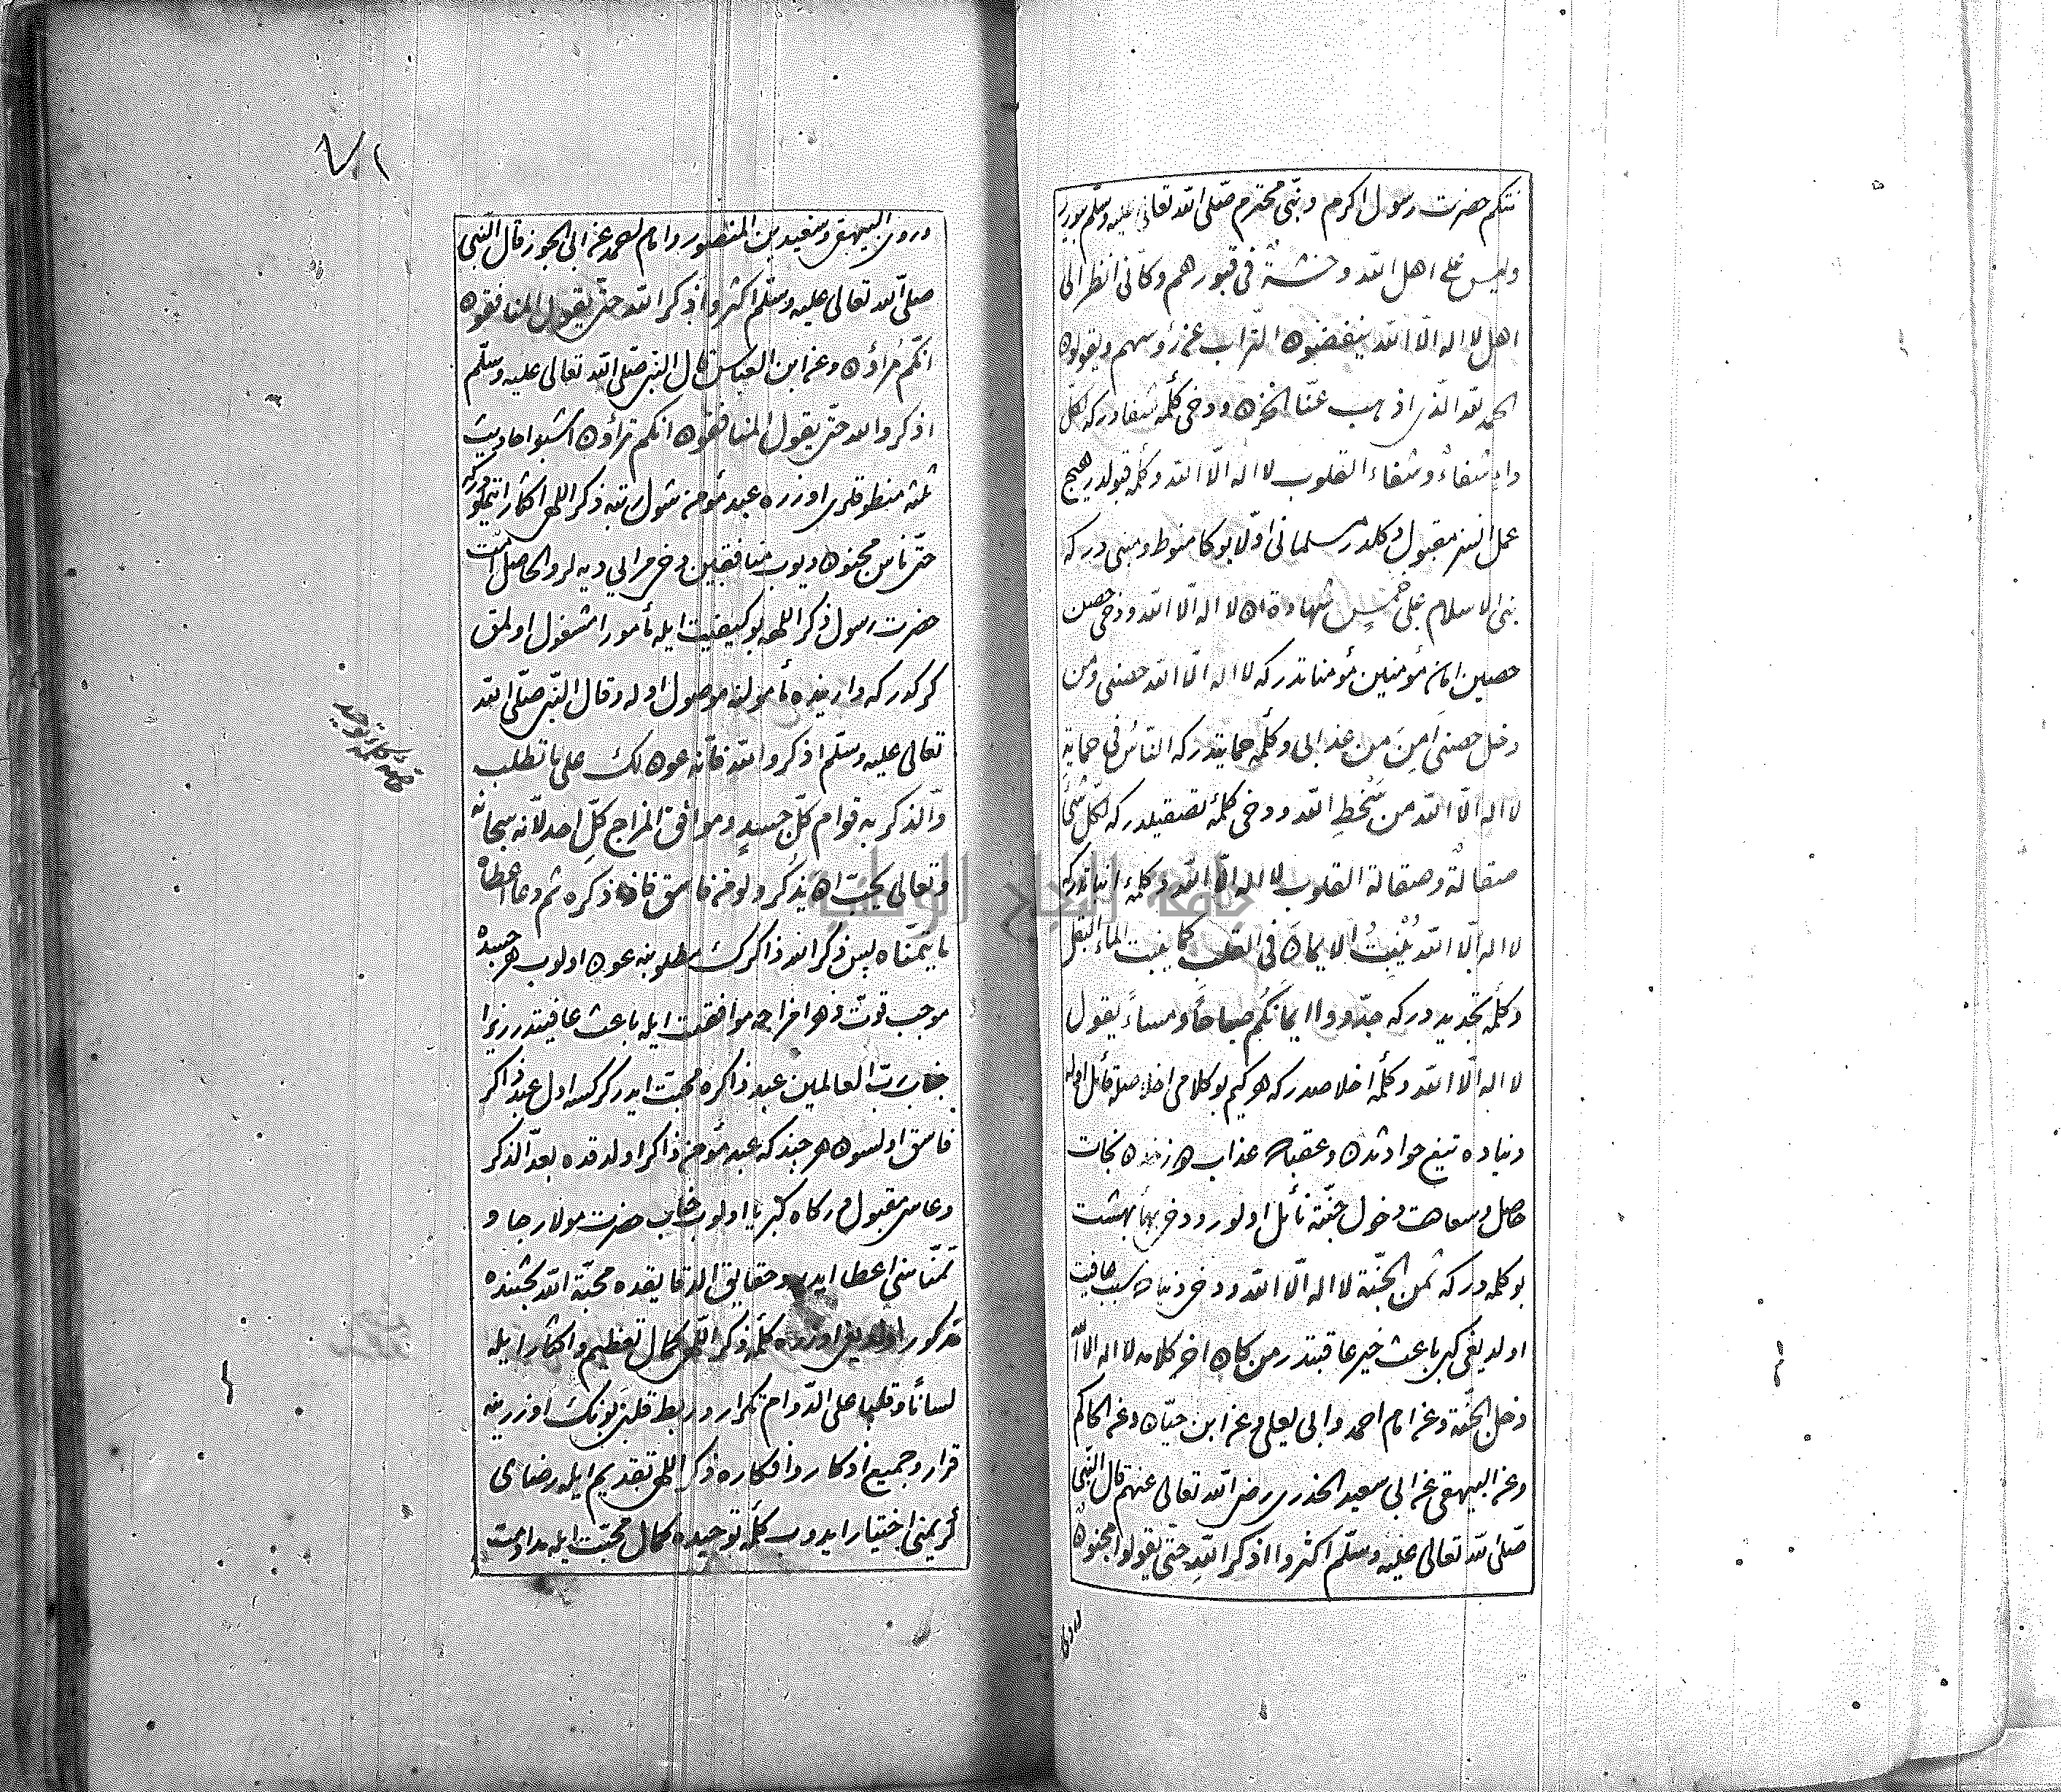 نتكم حضرت رسول اكرم و نبّى محترم صلّى الله تعالى عليه وسلّم بيورر
وليس على اهل الله وحشةٌ فى قبورهم وكانّى انظر الى
اهل لا اله الّا الله ينفضون التراب عن رؤسهم ويقولون
الحمد لله الّذى اذهب عنّا الحزن ودخى كلمۀ شفادركه لكلّ
داءٍ شفاءٌ وشفاء القلوب لا اله الّا الله وكلمۀ قبولدر هيچ
عمل انسز مقبول دكلدر مسلمانى اوّلا بوكا منوط ومبنى در كه
بنى الاسلام على خمسٍ شهادة ان لا اله الّا الله ودخى حصن
حصين امان مؤمنين مؤمناتدر كه لا اله الّا الله حصنى ومن
دخل حصنى اَمِنَ من عذابى وكلمۀ حمايتدر كه الناس فى حماية
لا اله الّا الله من سَخَطِ الله ودخى كلمۀ تصقيلدر كه لكلّ شئٍ
صقالةٌ وصقالة القلوب لا اله الّا الله وكلمۀ انباتدر كه
لا اله الّا الله يُنْبِتُ الايمان فى القلب كما ينبت الماء البقل
وكلمۀ تجديد در كه جدّدوا ايمانكم صباحاً ومساءً بقول
لا اله الّا الله وكلمۀ اخلاصدر كه هر كيم بو كلامى اخلاصله قائل اوله
دنياده تيغ حوادثدن وعقباده عذاب دوزخدن نجات
حاصل وسعادت دخول جنّته نائل اولور ودخى بهاء بهشت
بو كلمه در كه ثمن الجنّة لا اله الّا الله ودخى دنياده سبب عافيت
اولديغى كبى باعث خير عاقبتدر من كان اخر كلامه لا اله الّا الله
دخل الجنّة وعن امام احمد وابى يعلى وعن ابن حبّان وعن الحاكم
وعن البيهقى عن ابى سعيد الخدرى رضى الله تعالى عنهم قال النّبى
صلّى الله تعالى عليه وسلّم اكثروا اذكر الله حتّى يقولوا مجنونٌ
وروى
وروى البيهقى وسعيد بن المنصور وامام احمد عن ابى الجوز قال النّبى
صلّى الله تعالى عليه وسلّم اكثروا ذكر الله حتّى يقول المنافقون
انّكم مراؤن وعن ابن العباس قال النبى صلّى الله تعالى عليه وسلّم
اذكروا الله حتّى يقول المنافقون انكم تراؤن اشبو احاديث
ثلثه منطوقلرى اوزره عبد مؤمن شول رتبه ذكر اللهى اكثار ايتمك كركدركه
حتّى ناس مجنون ديوب منافقين دخى مرايى ديه لر والحاصل امّت
حضرت رسول ذكر اللهه بو كيفيت ايله مأمورا مشغول اولمق
كركدر كه دارينده مأمولنه موصول اوله وقال النّبى صلّى الله
تعالى عليه وسلّم اذكروا الله فانّه عون لك على ما تطلب
والذكر به قوام كلّ جسدٍ وموافق المزاج كلّ احد لانّه سبحانه
وتعالى يحبّ ان يذكر ولو من فاسق فاذا ذكره ثم دعا اعطاه
ما يتمنّاه پس ذكر الله ذاكرك مطلوبنه عون اولوب هر جسده
موجب قوّت وهر مزاجه موافقت ايله باعث عافيتدر زيرا
جناب ربّ العالمين عبد ذاكره محبّت ايدر كركسه اول عبد ذاكر
فاسق اولسون هر چند كه عبد مؤمن ذاكر اولدقده بعد الذكر
دعاسى مقبول دركاه كبريا اولوب جناب حضرت مولا رجا و
تمنّاسنى اعطا ايدر وحقايق الدقايقده محبّة الله بحثنده
مذكور اولديغى اوزره كلمۀ ذكر اللهى كمال تعظيم واكثار ايله
لساناً وقلباً على الدّوام تكرار وربط قلبى بونك اوزرينه
قرار وجميع اذكار وافكاره ذكر اللهى تقديم ايله رضاى
كريمنى اختيار ايدوب كلمۀ توحيده كمال محبّت ايله مداومت
كلمۀ توحيد
جامعة النجاح الوطنية